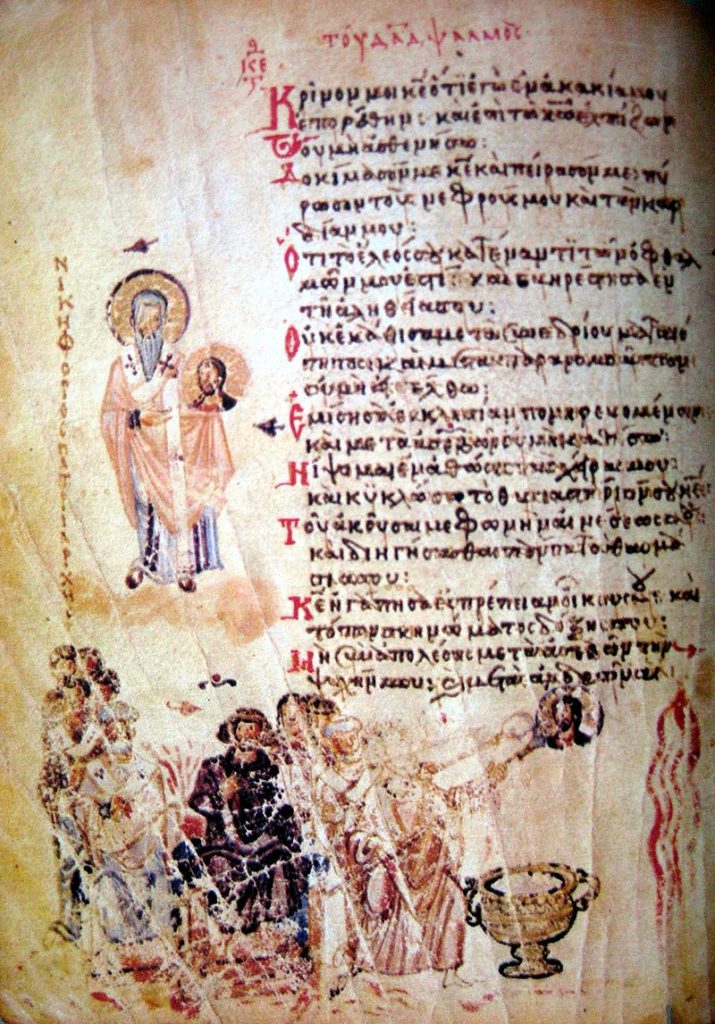 ΤΟΥ ΔΑΔ ΨΑΛΜΟΣ
ΚΕ
Κρῖνόν μοι κε ὅτι ἐγὼ ἐν ἀκακία μου
ἐπορεύθην· καὶ ἐπὶ τῶ κω ἐλπίζων
οὐ μὴ ἀσθενήσω:
Δοκίμασόν με κε καὶ πείρασόν με· πύ
ρωσον τοὺς νεφρούς μου καὶ τὴν καρ
δίαν μου:
Ὅτι τὸ ἔλεός σου κατέναντι τῶν ὀφθαλ
μῶν μου ἐστί· καὶ εὐηρέστησα ἐν
τῆ ἀληθεία σου:
Οὐκ ἐκάθισα μετὰ συνεδρίου ματαιό
τητος καὶ μετὰ παρανομούντων
οὐ μὴ εἰσέλθω:
Ἐμίσησα ἐκκλησίαν πονηρευομένων
καὶ μετὰ ἀσεβῶν οὐ μὴ καθίσω:
Νίψομαι ἐν ἀθώοις τὰς χεῖρας μου:
καὶ κυκλώσω τὸ θυσιαστήριόν σου κε
Τοῦ ἀκοῦσαι με φωνῆς αἰνέσεώς σου
καὶ διηγήσασθαι πάντα τὰ θαυμά
σια σου:
Κε ἠγάπησα εὐπρέπειαν οἴκου σου· καὶ
τόπον σκηνώματος δόξης σου:
Μὴ συναπολέσης μετὰ ἀσεβῶν τὴν
ψυχήν μου:
ΝΙΚΗΦΟΡΟΣ ΠΑΤΡΙΑΡΧΗΣ